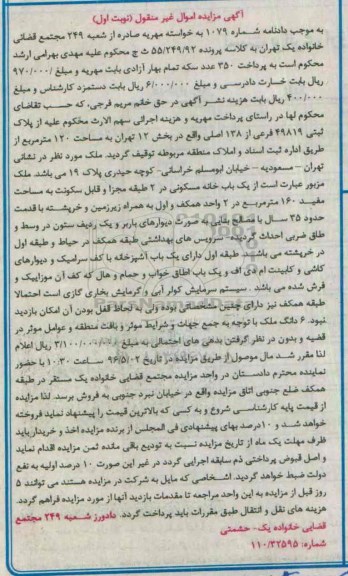 آگهی مزایده اموال غیر منقول (نوبت اول)
به موجب دادنامه شماره ۱۰۷۹ به خواسته مهریه صادره از شعبه ۲۴۹ مجتمع قضائی
خانواده یک تهران به کلاسه پرونده ۵۵/۲۴۹/۹۲ ث ج محکوم علیه مهدی بهرامی ارشد
محکوم است به پرداخت ۳۵۰ عدد سکه تمام بهار آزادی بابت مهریه و مبلغ ۹۷۰/۰۰۰/
ریال بابت خسارت دادرسی و مبلغ ۶/۰۰۰/۰۰۰ ریال بابت دستمزد کارشناس و مبلغ
۴۰۰/۰۰۰ ریال بابت هزینه نشر آگهی در حق خانم مریم فرجی، که حسب تقاضای
محکوم لها در راستای پرداخت مهریه و هزینه اجرائی سهم الارث محکوم علیه از پلاک
ثبتی ۴۹۸۱۹ فرعی از ۱۳۸ اصلی واقع در بخش ۱۲ تهران به مساحت ۱۲۰ مترمربع از
طریق اداره ثبت اسناد و املاک منطقه مربوطه توقیف گردید. ملک مورد نظر در نشانی
تهران – مسعودیه – خیابان ابومسلم خراسانی- کوچه حیدری پلاک ۱۹ می باشد. ملک
مزبور عبارت است از یک باب خانه مسکونی در ۲ طبقه مجزا و قابل سکونت به مساحت
مفید ۱۶۰ مترمربع در ۲ واحد همکف و اول به همراه زیرزمین و خرپشته با قدمت
حدود ۳۵ سال با مصالح بنایی به صورت دیوارهای باربر و یک ردیف ستون در وسط و
طاق ضربی احداث گردیده. سرویس های بهداشتی طبقه همکف در حیاط و طبقه اول
در خرپشته می باشند. طبقه اول دارای یک باب آشپزخانه با کف سرامیک و دیوارهای
کاشی و کابینت ام دی اف و یک باب اطاق خواب و حمام و هال که کف آن موزاییک و
فرش شده می باشد. سیستم سرمایش کولر آبی و گرمایش بخاری گازی است احتمالا
طبقه همکف نیز دارای چنین مشخصاتی بوده ولی به لحاظ قفل بودن آن امکان بازدید
نبود. ۶ دانگ ملک با توجه به جمع جهات و شرایط موثر و بافت منطقه و عوامل موثر در
قضیه و بدون در نظر گرفتن بدهی های احتمالی به مبلغ ۳/۱۰۰/۰۰۰/۰۰۰ ریال اعلام
لذا مقرر شد مال موصول از طریق مزایده در تاریخ ۹۶/۵/۰۲ ساعت ۱۰:۳۰ با حضور
نماینده محترم دادستان در واحد مزایده مجتمع قضایی خانواده یک مستقر در طبقه
همکف ضلع جنوبی اتاق مزایده واقع در خیابان نبرد جنوبی به فروش برسد. لذا مزایده
از قیمت پایه کارشناسی شروع و به کسی که بالاترین قیمت را پیشنهاد نماید فروخته
خواهد شد و ۱۰ درصد بهای پیشنهادی فی المجلس از برنده مزایده اخذ و خریدار باید
ظرف مهلت یک ماه از تاریخ مزایده نسبت به تودیع باقی مانده ثمن مزایده اقدام نماید
و اصل قبوض پرداختی ذم سابقه اجرایی گردد در غیر این صورت ۱۰ درصد اولیه به نفع
دولت ضبط خواهد گردید. اشخاصی که مایل به شرکت در مزایده هستند می توانند ۵
روز قبل از مزایده به این واحد مراجعه تا مقدمات بازدید آنها از مورد مزایده فراهم گردد.
هزینه های نقل و انتقال طبق مقررات باید پرداخت گردد. دادورز شعبه ۲۴۹ مجتمع
قضایی خانواده یک- حشمتی
شماره: ۱۱۰/۳۲۵۹۵